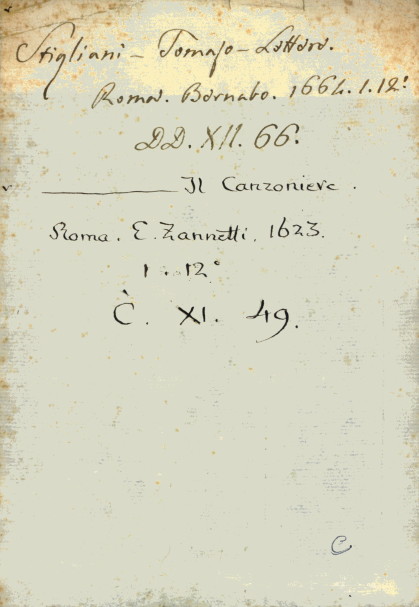 Stigliani - Tomaso - Lettere.
Roma. Bernabo. 1664. 1. 12°
DD. XII. 66.
——— Il Canzoniere.
Roma. E. Zannetti. 1623.
1. 12°
C. XI. 49.
C